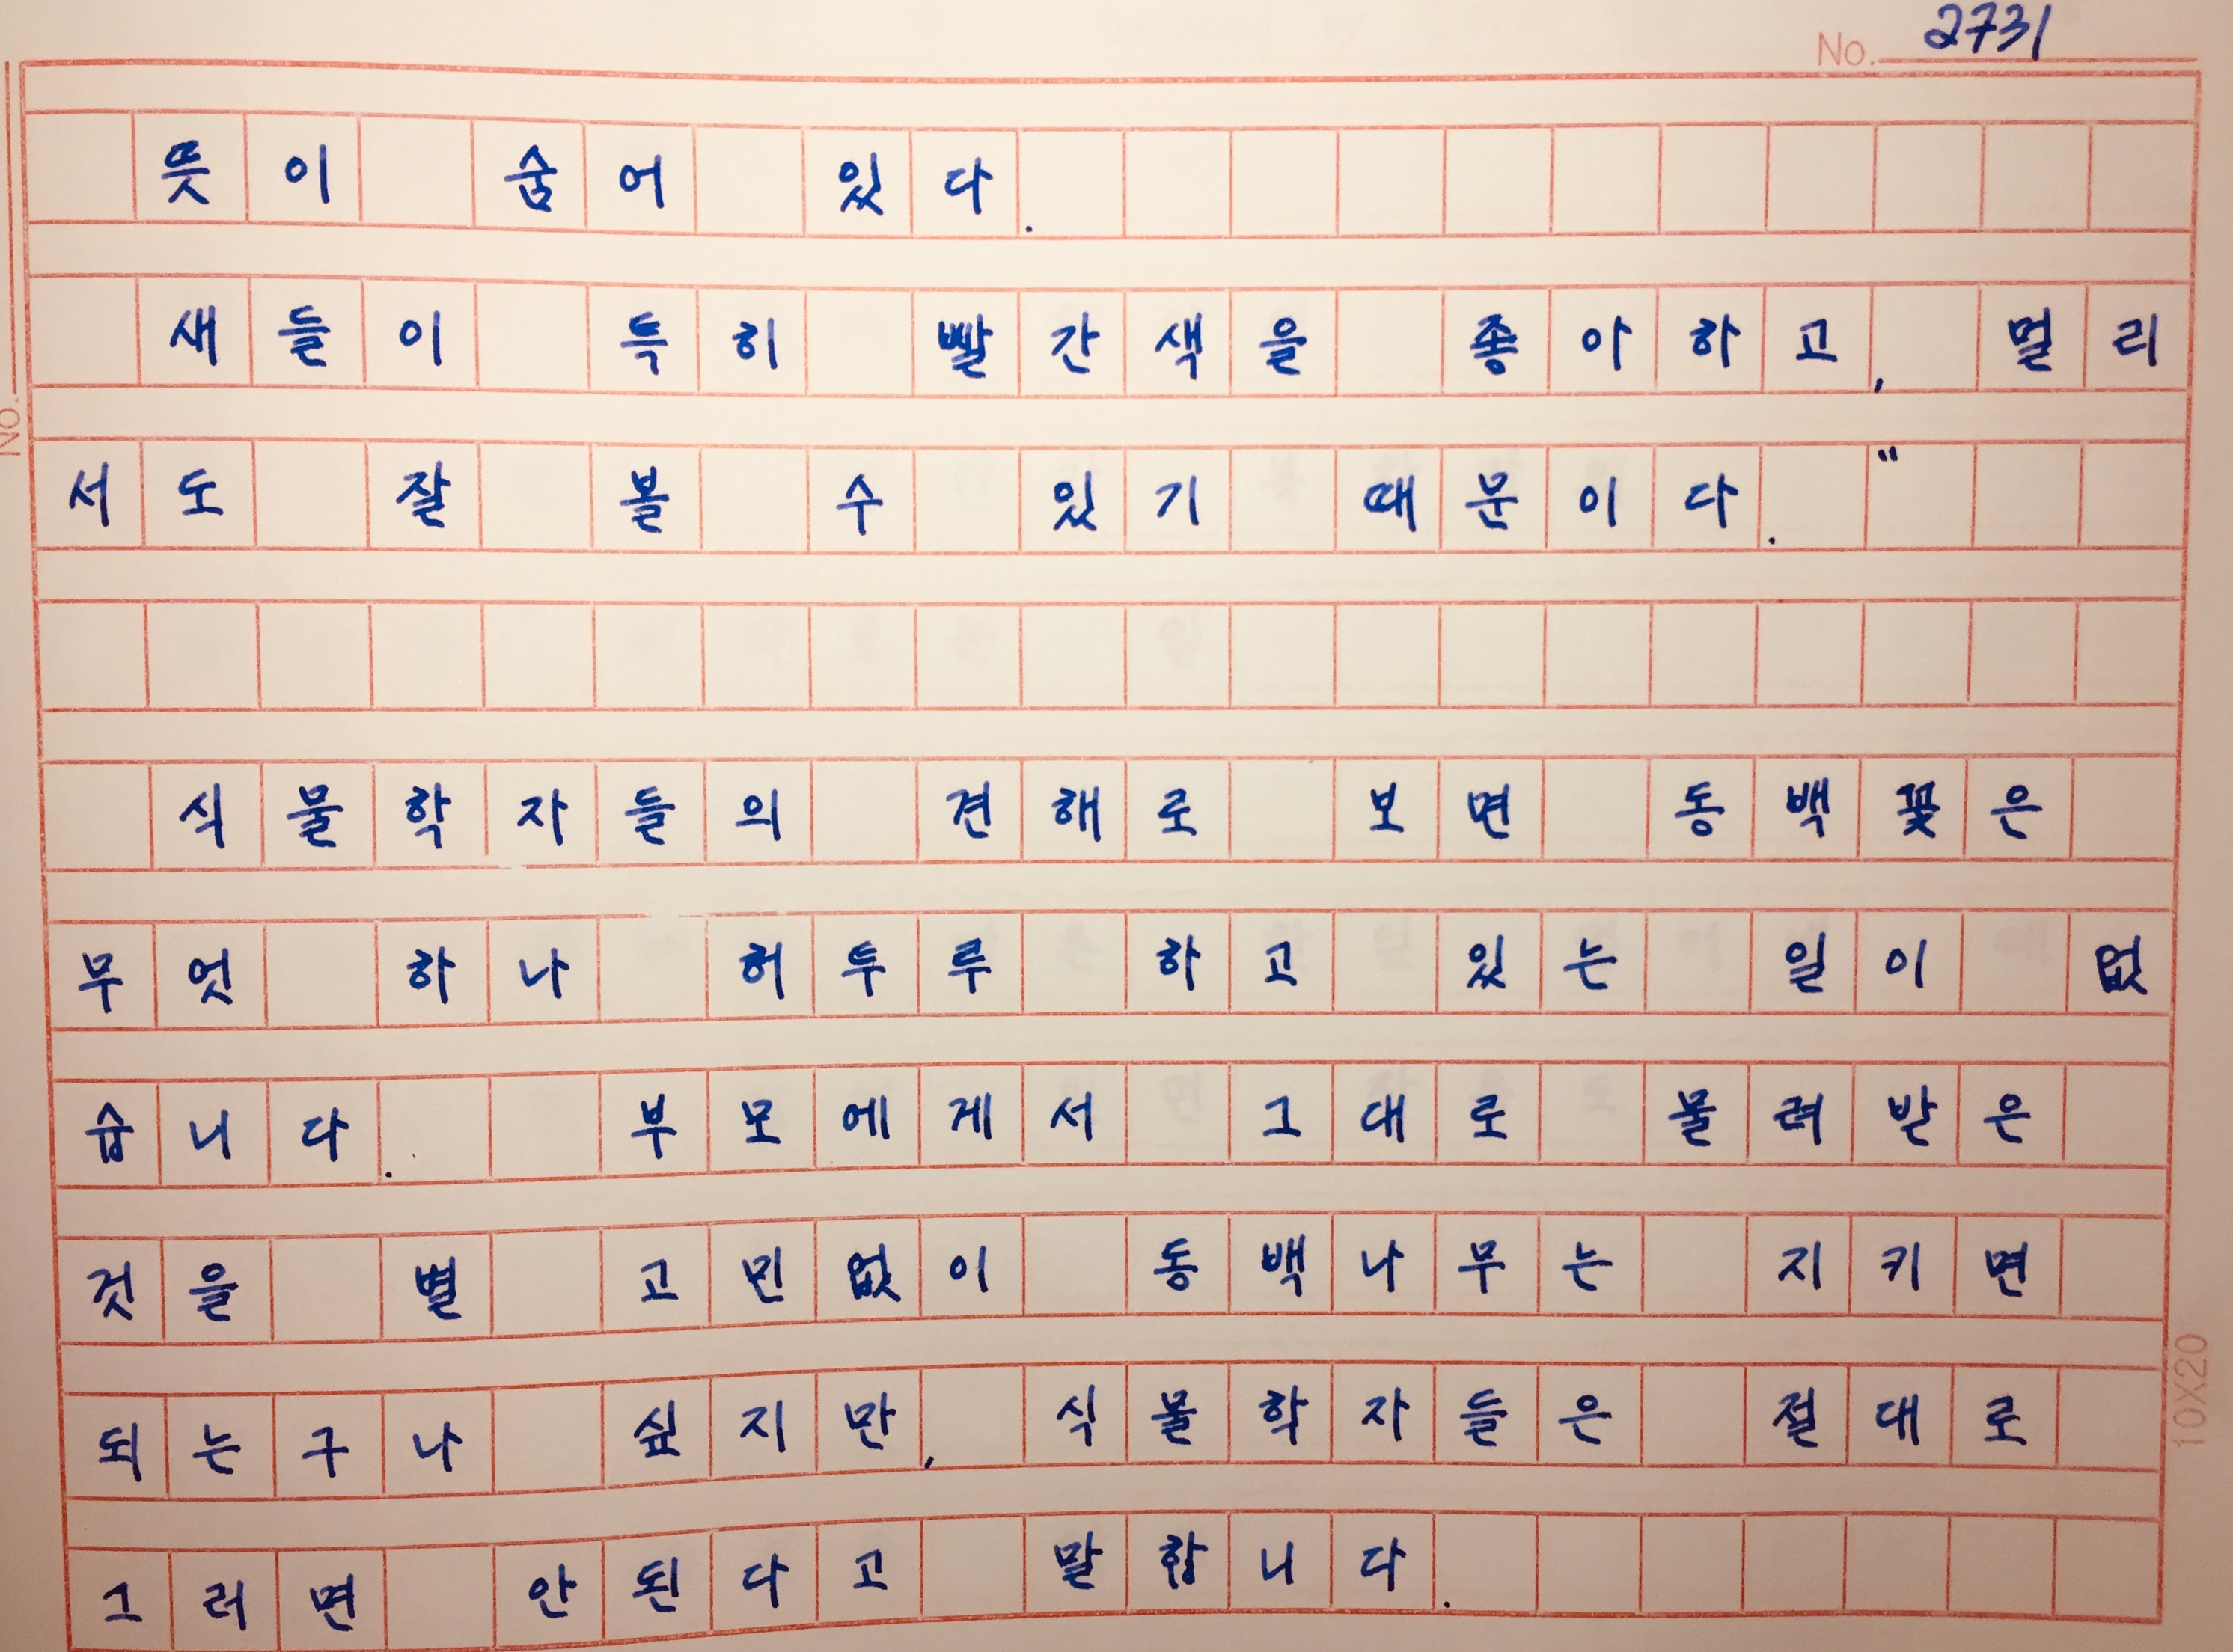 No. 2731
뜻이 숨어 있다.
새들이 특히 빨간색을 좋아하고, 멀리
서도 잘 볼 수 있기 때문이다. "
식물학자들의 견해로 보면 동백꽃은
무엇 하나 허투루 하고 있는 일이 없
습니다. 부모에게서 그대로 물려받은
것을 별 고민없이 동백나무는 지키면
되는구나 싶지만, 식물학자들은 절대로
그러면 안된다고 말합니다.
No.
10X20